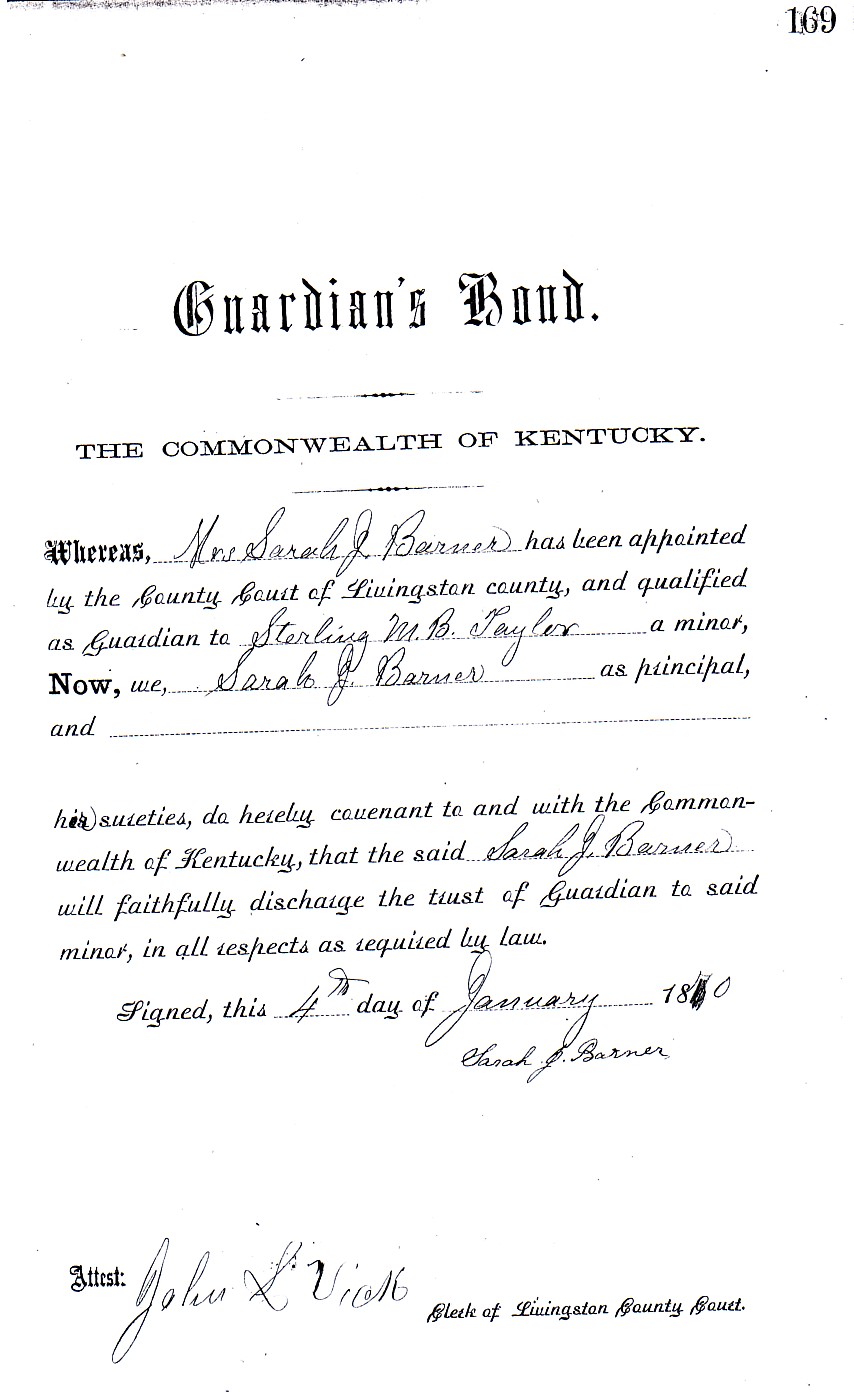 169
Guardian's Bond.
THE COMMONWEALTH OF KENTUCKY.
Whereas, Mrs Sarah J. Barner has been appointed
by the County Court of Livingston county, and qualified
as Guardian to Sterling M. B. Taylor a minor,
Now, we, Sarah J. Barner as principal,
and
sureties, do hereby covenant to and with the Common-
wealth of Kentucky, that the said Sarah J. Barner
will faithfully discharge the trust of Guardian to said
minor, in all respects as required by law.
Signed, this 4th day of January
Sarah J. Barner
Attest: John L Vick
Clerk of Livingston County Court.